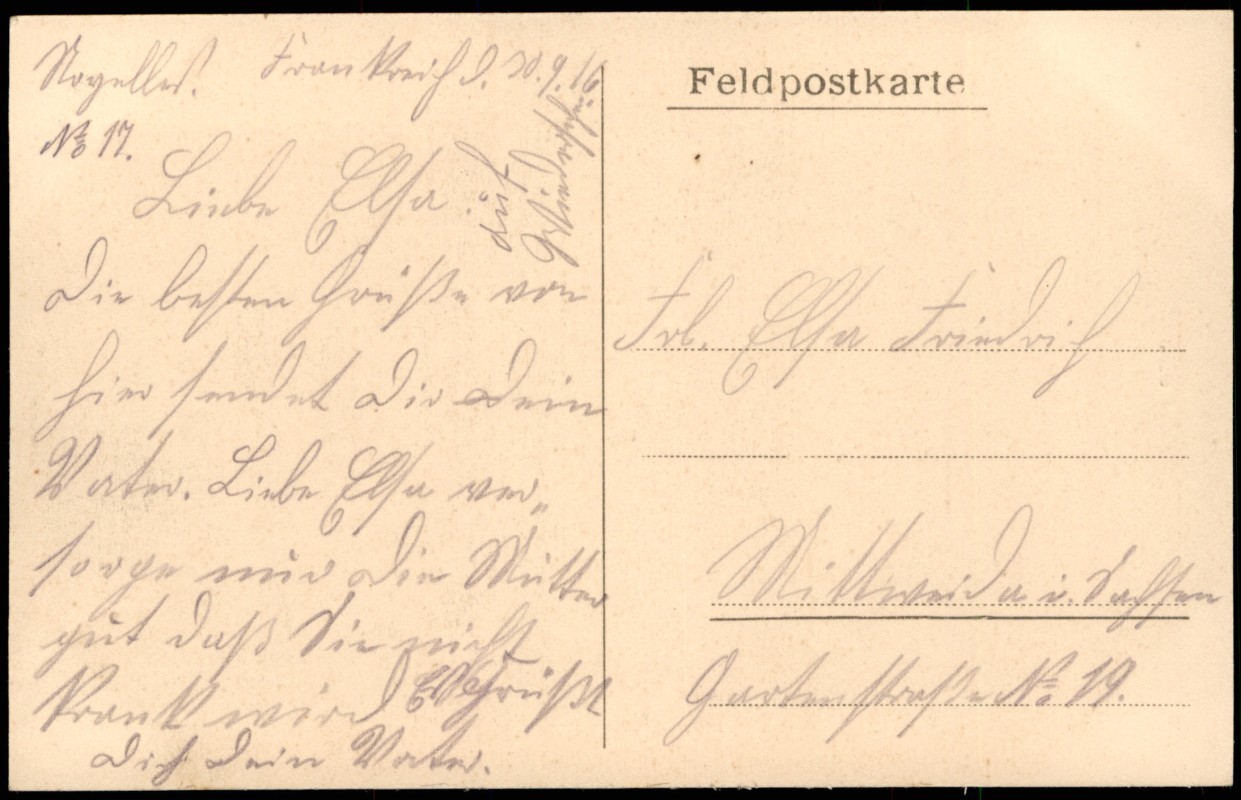 Noyelles. Frankreich d. 30.9.16
No 17.
Liebe Elsa
auf
Wiedersehn
Die besten Grüße von
hier sendet Dir Dein
Vater. Liebe Elsa ver„
sorge mir die Mutter
gut daß Sie nicht
krank wird Es Grüßt
Dich Dein Vater.
Feldpostkarte
Frl. Elsa Friedrich
Mittweida i. Sachsen
Gartenstraße No 19.